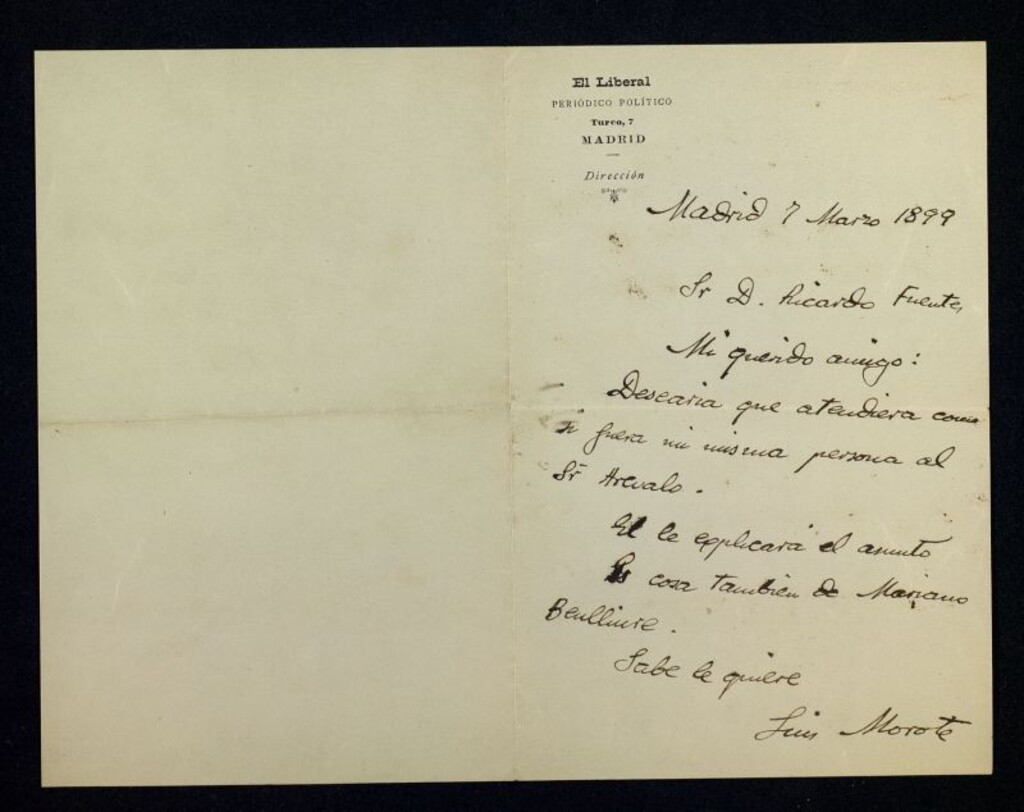 El Liberal
PERIÓDICO POLÍTICO
Turco, 7
MADRID
Dirección
Madrid 7 Marzo 1899
Sr D. Ricardo Fuentes
Mi querido amigo:
Desearia que atendiera como
si fuera mi misma persona al
Sr Arevalo.
El le explicará el asunto
Es cosa tambien de Mariano
Benlliure.
Sabe le quiere
Luis Morote